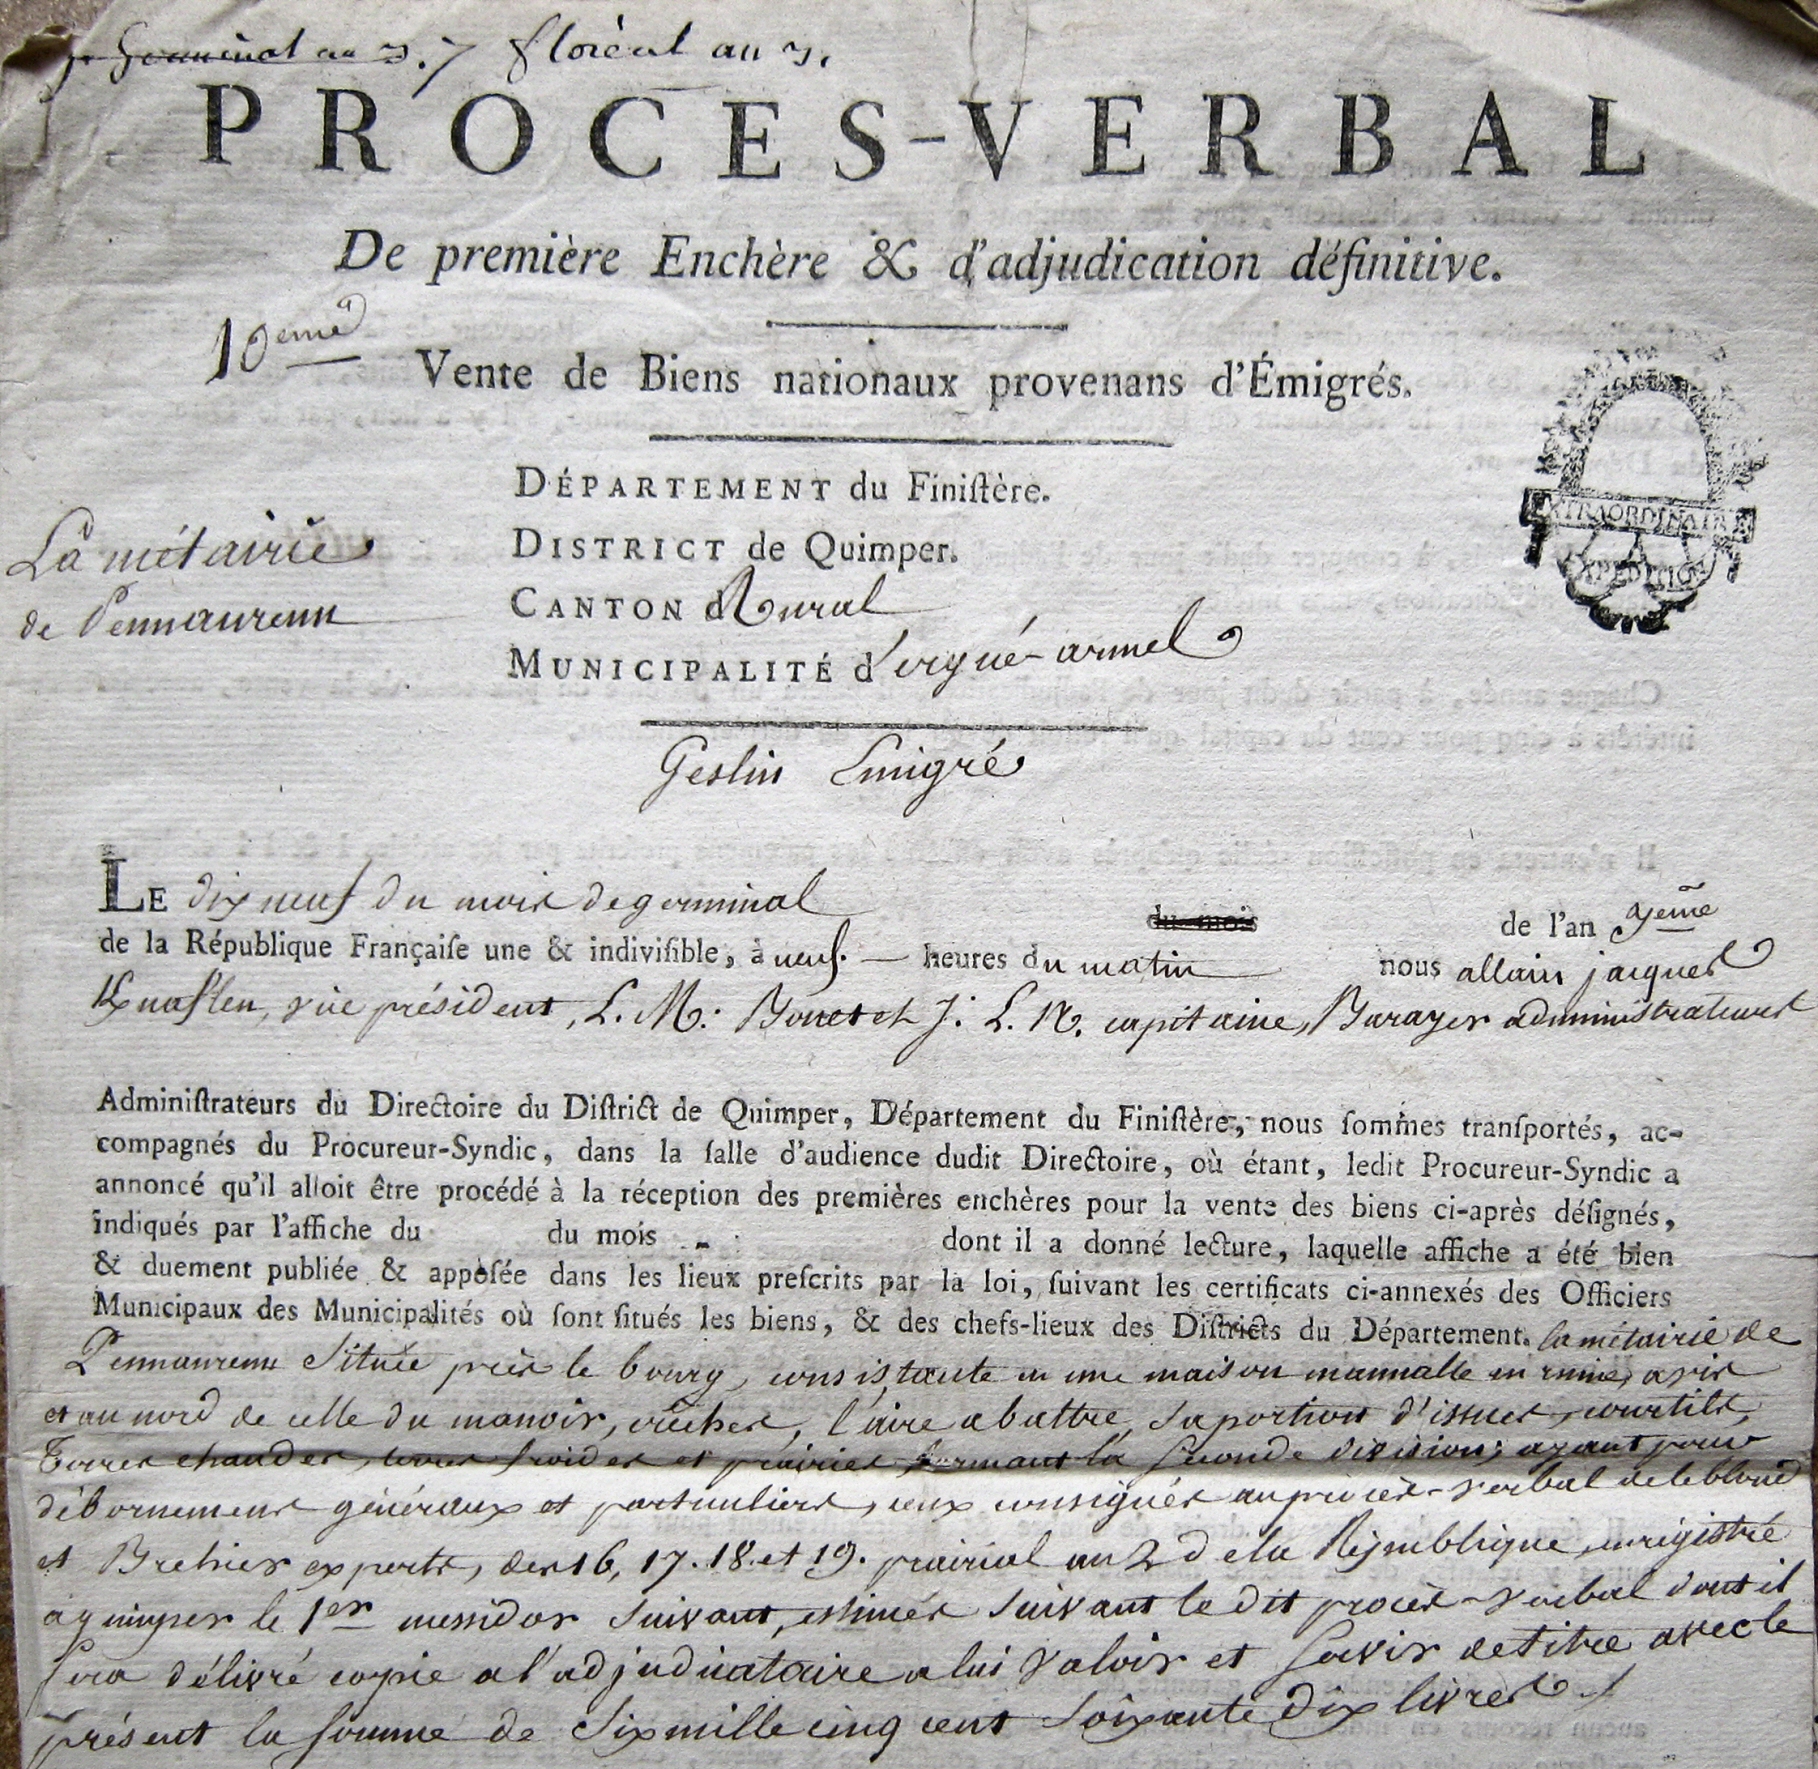 Germinal an 3. 7 floréal an 3.
PROCES-VERBAL
De première Enchère & d'adjudication définitive.
10eme
Vente de Biens nationaux provenans d'Émigrés.
DÉPARTEMENT du Finiſtère.
EXTRAORDINAIRE
EXPEDITION
La métairie
de Pennaurenn
DISTRICT de Quimper.
CANTON d Rural
MUNICIPALITÉ d'ergué-armel
Geslin Emigré
LE dix neuf du mois de germinal du mois de l'an 3eme
de la République Françaiſe une & indiviſible, à neuf. heures du matin nous allain jacques
vice président, L. M. Bonet et J. L. N. capitaine, administrateurs
Adminiſtrateurs du Directoire du Diſtrict de Quimper, Département du Finiſtère, nous ſommes tranſportés, ac-
compagnés du Procureur-Syndic, dans la ſalle d'audience dudit Directoire, où étant, ledit Procureur-Syndic a
annoncé qu'il alloit être procédé à la réception des premières enchères pour la vente des biens ci-après déſignés,
indiqués par l'affiche du du mois dont il a donné lecture, laquelle affiche a été bien
& duement publiée & appoſée dans les lieux preſcrits par la loi, ſuivant les certificats ci-annexés des Officiers
Municipaux des Municipalités où ſont ſitués les biens, & des chefs-lieux des Diſtricts du Département. la métairie de
Pennaurenn Située près le bourg, consistante en une maison mannalle en ruine, avis
et au nord de celle du manoir, crêches, l'aire a battre, Sa portion d'issues, courtils,
Terres chaudes, terres froides et prairies formant la Seconde division; ayant pour
débornemens généraux et particuliers, ceux consignés au procès-verbal de leblond
et Brehier experts, des 16, 17. 18. et 19. prairial an 2d de la République, enregistré
a quimper le 1er messidor Suivant, estimés Suivant le dit procès-verbal dont il
Sera délivré copie a l'adjudicataire a lui valoir et Servir de titre avec le
présent la Somme de Six mille cinq cent Soixante Dix livres